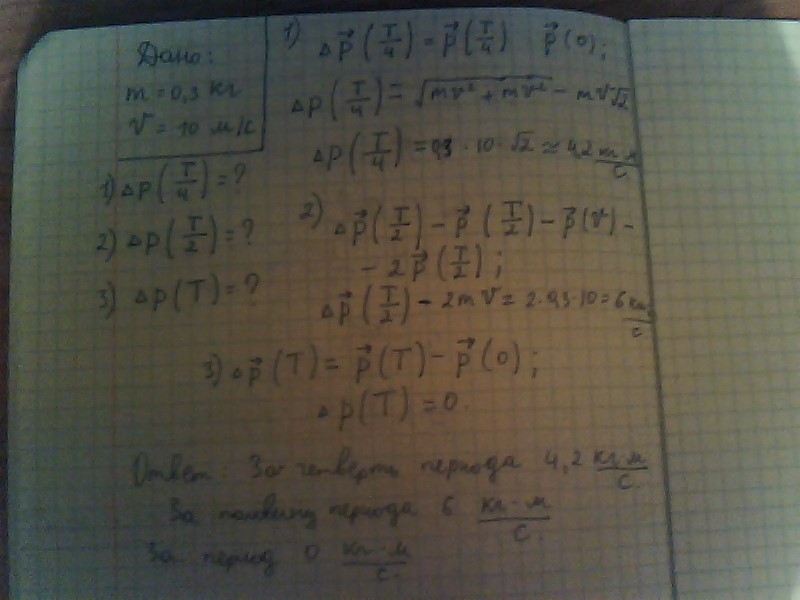 Дано:
m = 0,3 кг
V = 10 м/с
1) Δp(T/4) = ?
2) Δp(T/2) = ?
3) Δp(T) = ?
1) Δp⃗(T/4) = p⃗(T/4) p⃗(0);
Δp(T/4) = √(mv² + mv²) - mv√2
Δp(T/4) = 0,3 · 10 · √2 ≈ 4,2 кг·м/с
2) Δp⃗(T/2) - p⃗(T/2) - p⃗(v) -
- 2p⃗(T/2);
Δp⃗(T/2) - 2mV = 2·0,3·10 = 6 кг·/с
3) Δp⃗(T) = p⃗(T) - p⃗(0);
Δp(T) = 0.
Ответ: За четверть периода 4,2 кг·м/с.
За половину периода 6 кг·м/с.
За период 0 кг·м/с.